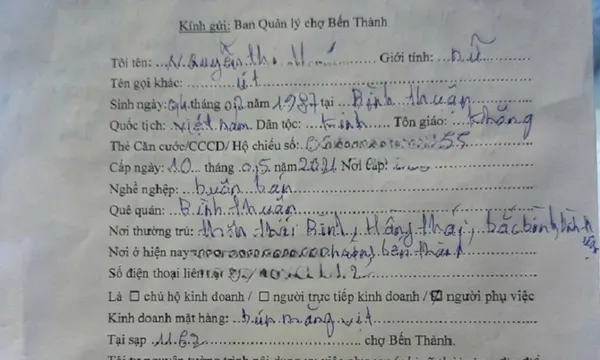 Kính gửi: Ban Quản lý chợ Bến Thành
Tôi tên: Nguyễn thị Giới tính: nữ
Tên gọi khác: út
Sinh ngày: 04 tháng 02 năm 1987 tại Bình thuận
Quốc tịch: việt nam Dân tộc: kinh Tôn giáo: không
Thẻ Căn cước/CCCD/ Hộ chiếu số: 55
Cấp ngày: 10 tháng 05 năm 2021 Nơi cấp:
Nghề nghệp: buôn bán
Quê quán: Bình thuận
Nơi thường trú: thôn thái Bình, Hồng thái, bắc bình, bình
Nơi ở hiện nay bến thành
Số điện thoại liên 2
Là ☐ chủ hộ kinh doanh / ☐ người trực tiếp kinh doanh / ☑ người phụ việc
Kinh doanh mặt hàng: bún măng vịt
Tại sạp 1162 chợ Bến Thành.